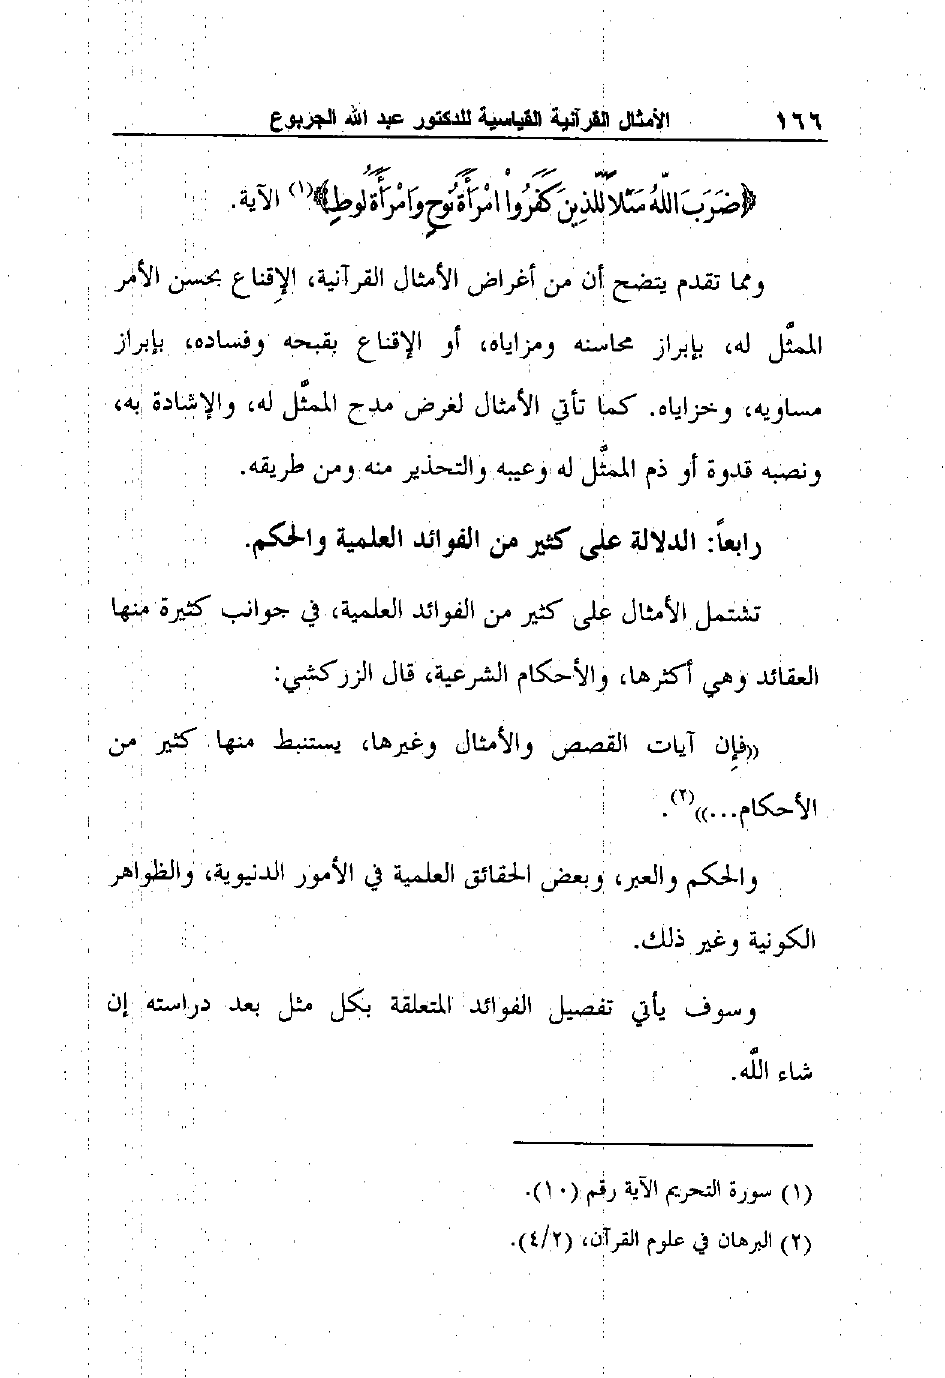 ١٦٦ الأمثال القرآنية القياسية للدكتور عبد الله الجربوع
﴿ضَرَبَ اللَّهُ مَثَلاً لِّلَّذِينَ كَفَرُواْ امْرَأَةَ نُوحٍ وَامْرَأَةَ لُوطٍ﴾(١) الآية.
ومما تقدم يتضح أن من أغراض الأمثال القرآنية، الإقناع بحسن الأمر
الممثَّل له، بإبراز محاسنه ومزاياه، أو الإقناع بقبحه وفساده، بإبراز
مساويه، وخزاياه. كما تأتي الأمثال لغرض مدح الممثَّل له، والإشادة به،
ونصبه قدوة أو ذم الممثَّل له وعيبه والتحذير منه ومن طريقه.
رابعاً: الدلالة على كثير من الفوائد العلمية والحكم.
تشتمل الأمثال على كثير من الفوائد العلمية، في جوانب كثيرة منها
العقائد وهي أكثرها، والأحكام الشرعية، قال الزركشي:
((فإن آيات القصص والأمثال وغيرها، يستنبط منها كثير من
الأحكام...))(٢).
والحكم والعبر، وبعض الحقائق العلمية في الأمور الدنيوية، والظواهر
الكونية وغير ذلك.
وسوف يأتي تفصيل الفوائد المتعلقة بكل مثل بعد دراسته إن
شاء اللَّه.
(١) سورة التحريم الآية رقم (١٠).
(٢) البرهان في علوم القرآن، (٤/٢).